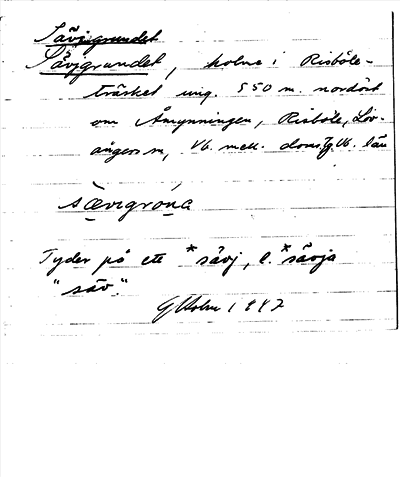 Sävjgrundet
Sävjgrundet, holme i Risböle-
träsket ung. 550 m. nordöst
om Åmynningen, Risböle, Löv-
ångers sn, Vb. mell. doms. Vb. län
sævɪgrona
Tyder på ett *sävj, l. *sävja
"säv".
G Holm 1942